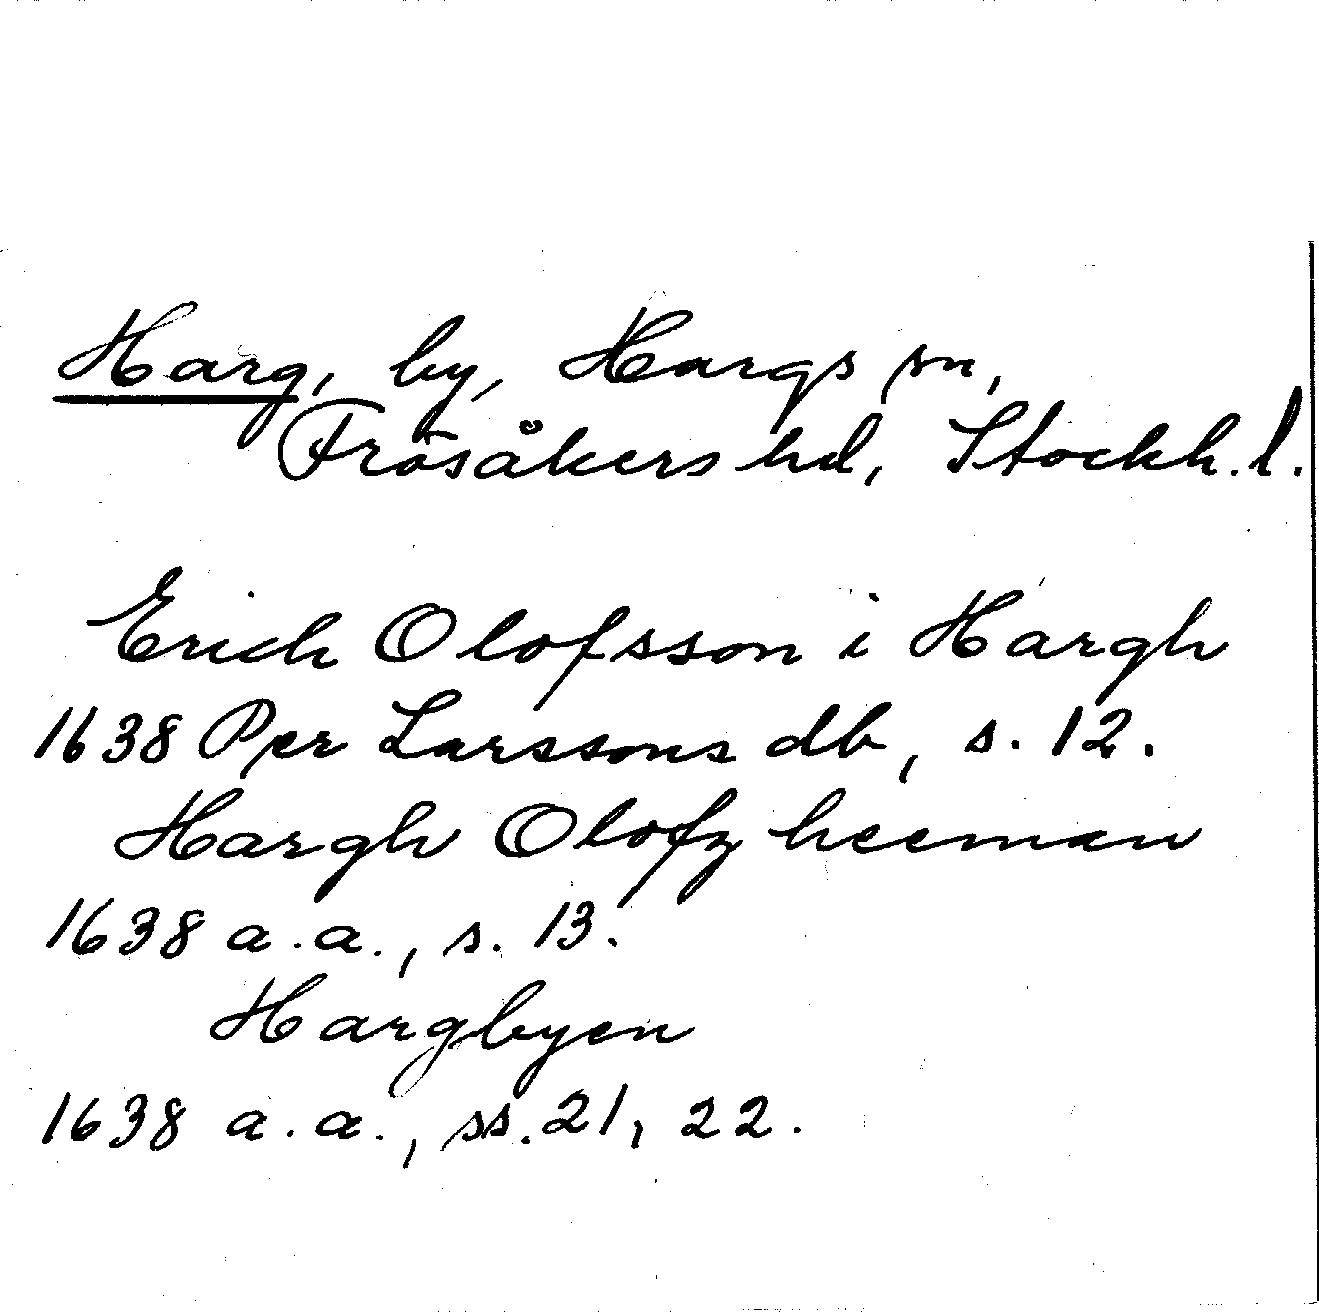 Harg, by, Hargs sn,
Frösåkers hd, Stockh. l.
Erich Olofsson i Hargh
1638 Per Larssons db, s. 12.
Hargh Olofz heeman
1638 a.a., s. 13.
Hargbyen
1638 a.a., ss. 21, 22.